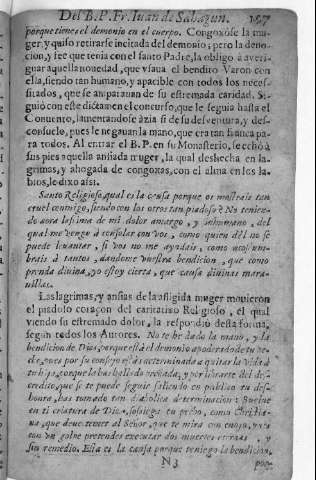 Del B. P. Fr. Iuan de Sahagun. 197
porque tienes el demonio en el cuerpo. Congoxòse la mu-
ger, y quiso retirarse incitada del demonio; pero la deuo-
cion, y fee que tenia con el santo Padre, la obligò à averi-
guar aquella nouedad, que vsaua el bendito Varon con
ella, siendo tan humano, y apacible con todos los neces-
sitados, que se amparauan de su estremada caridad. Si-
guiò con este dictamen el concurso, que le seguia hasta el
Conuento, lamentandose àzia si de su desventura, y des-
consuelo, pues le negauan la mano, que era tan franca pa-
ra todos. Al entrar el B. P. en su Monasterio, se echò à
sus pies aquella ansiada muger, la qual deshecha en la-
grimas, y ahogada de congoxas, con el alma en los la-
bios, le dixo assi.
Santo Religioso, qual es la causa porque os mostrais tan
cruel conmigo, siendo con los otros tan piadoso? No tenien-
do aora lastima de mi dolor amargo, y inhumano, del
qual me vengo à consolar con vos, como quien dèl no se
puede leuantar, si vos no me ayudais, como acostum-
brais à tantos, dandome vuestra bendicion, que como
prenda diuina, yo estoy cierta, que causa diuinas mara-
uillas.
Las lagrimas, y ansias de la afligida muger mouieron
el piadoso coraçon del caritatiuo Religioso, el qual
viendo su estremado dolor, la respondiò desta forma,
segun todos los Autores. No te he dado la mano, y la
bendicion de Dios, porque està el demonio apoderado de tu
pues por su consejo estàs acterminada a quitar la vida à
tu hija, porque la has hallado preñada, y por librarte del des-
credito, que se te puede seguir saliendo en publico tu des-
honra, has tomado tan diabolica determinacion: Buelue
en ti criatura de Dios, sossiega tu pecho, como Christia-
na, que deue temer al Señor, que te mira con enojo,
con vn golpe pretendes executar dos muertes eternas y
sin remedio. Esta es la causa porque te niego la bendicion,
N 3 por-